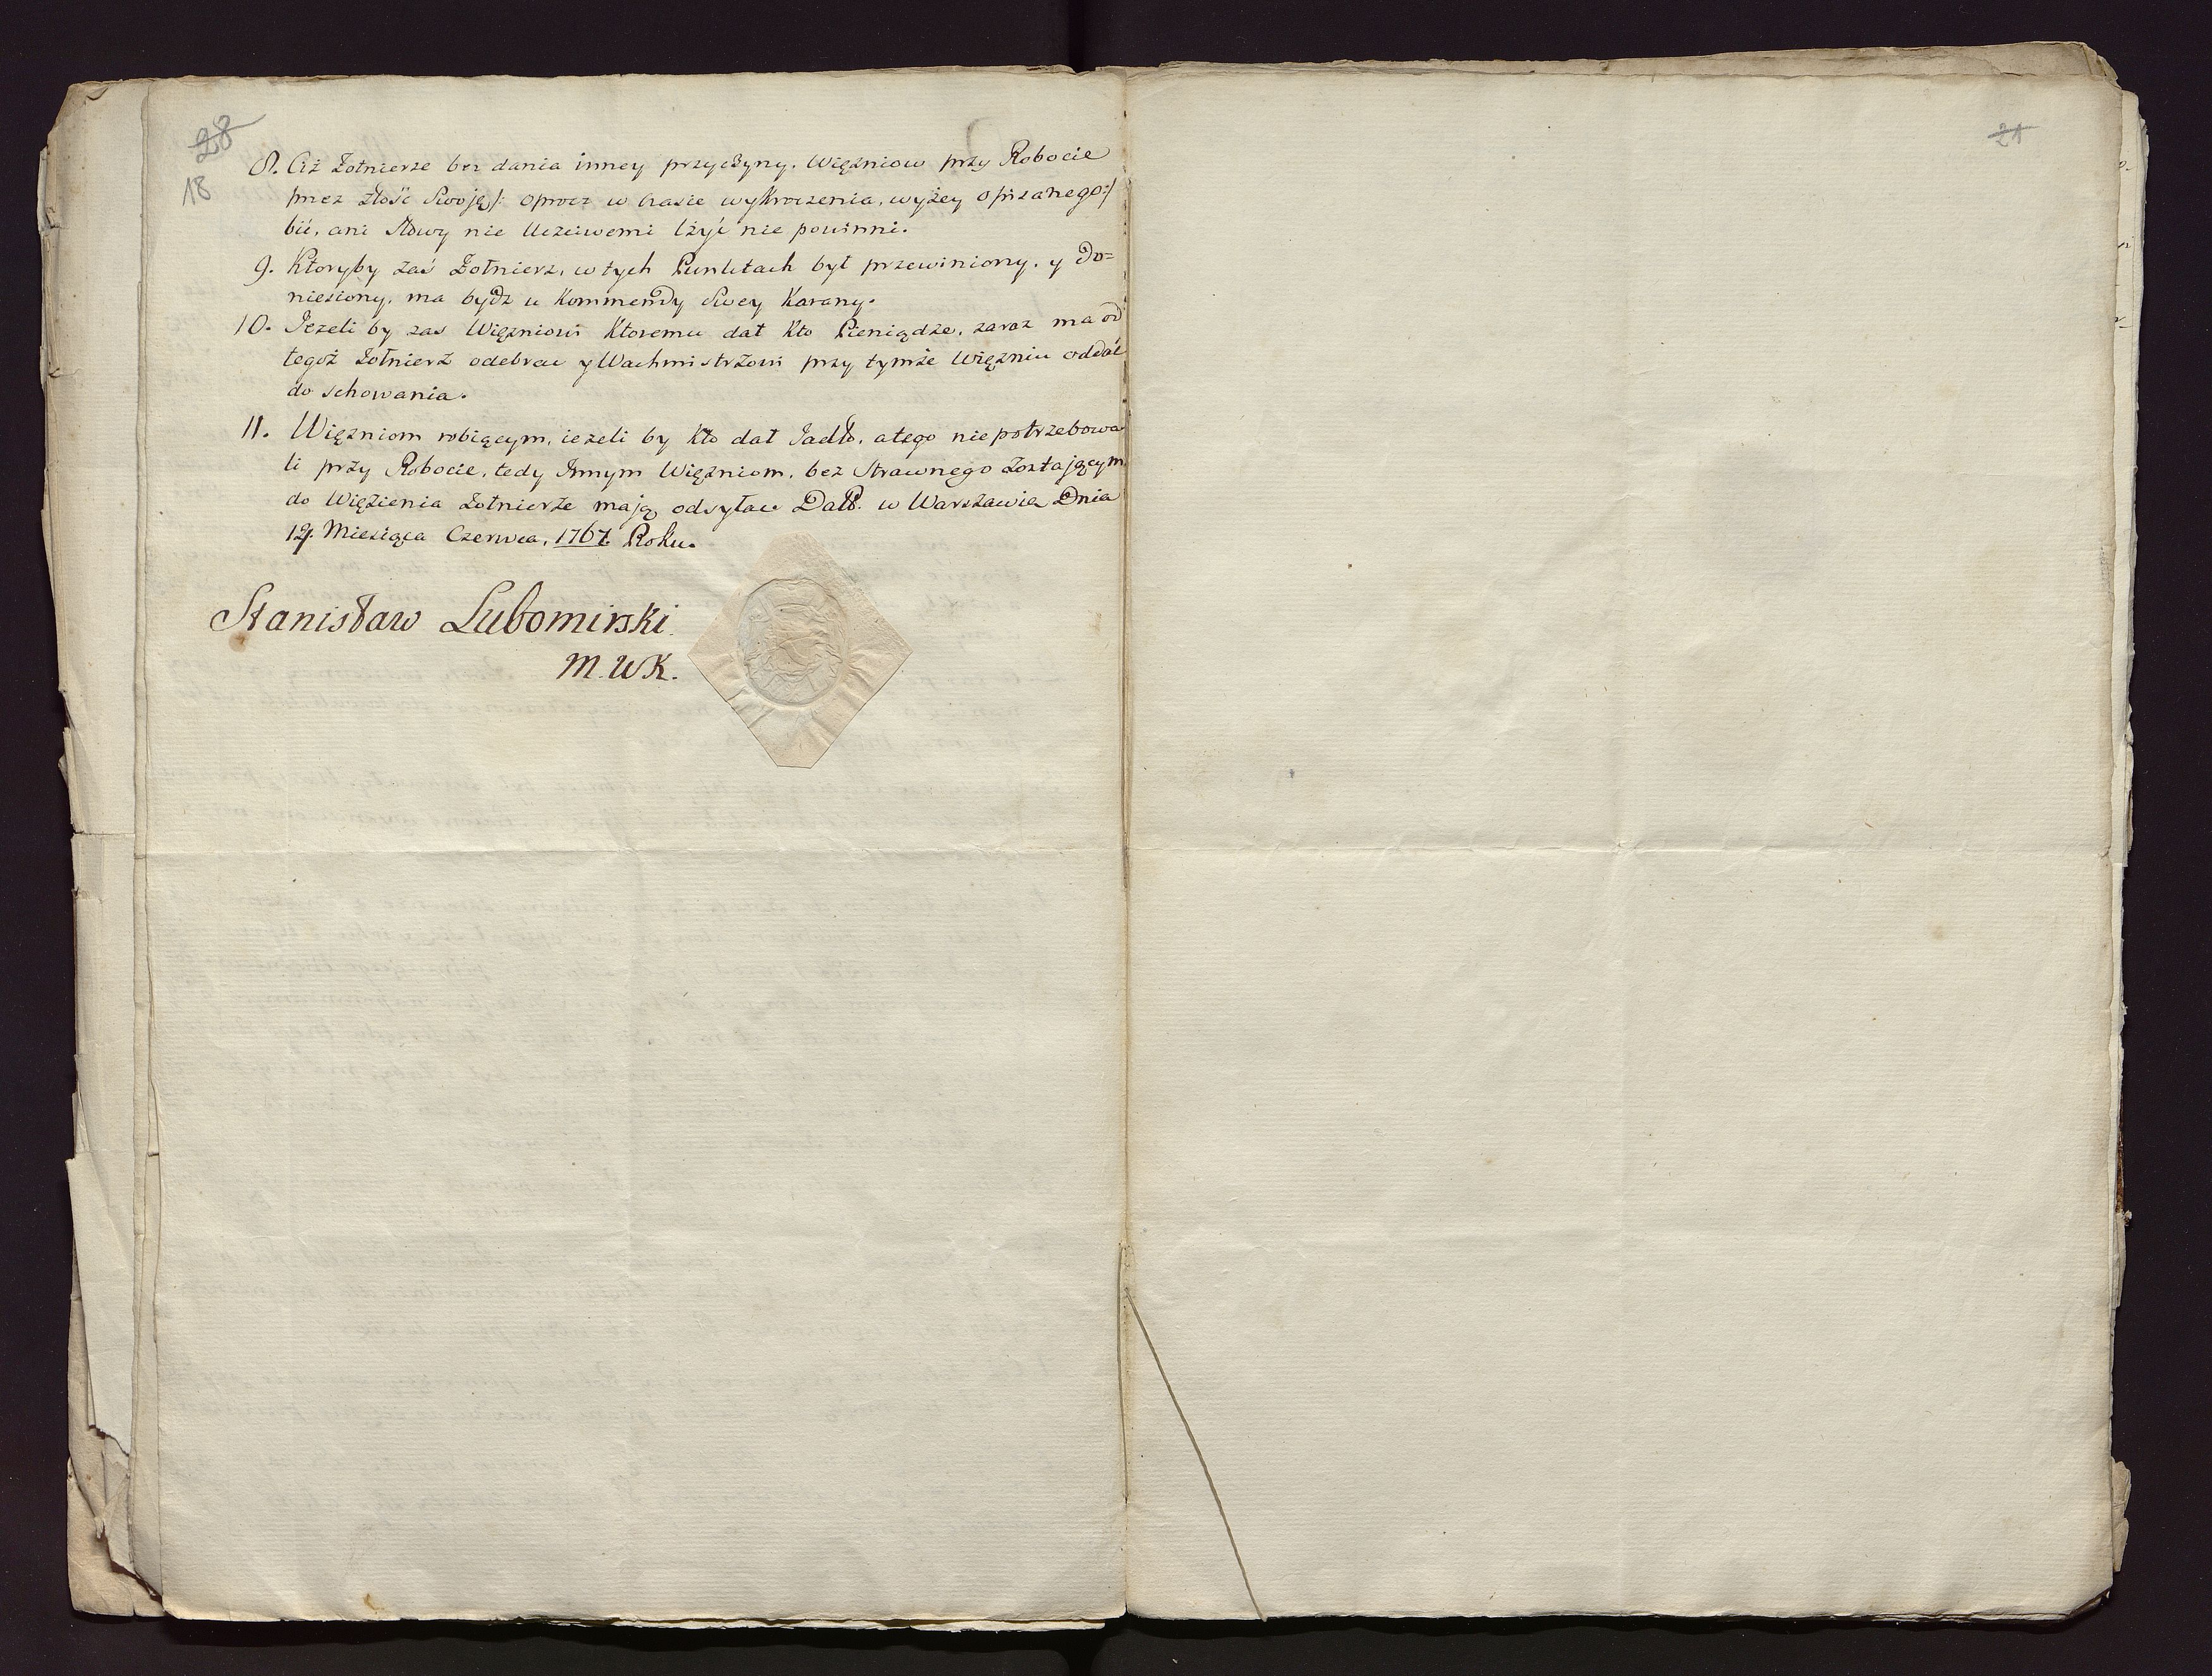 28
18
8. Ciż Żołnierze bez dania inney przyczyny, Więzniow przy Robocie
przez złość Swoję /: oprocz w czasie wykroczenia, wyżey opisanego :/
bić, ani Słowy nie Uczciwemi lżyć nie powinni.
9. Ktoryby zaś Żołnierz, w tych Punktach był przewiniony, y do=
niesiony, ma bydz u Kommendy Swey Karany.
10. Jeżeli by zas Więzniowi Ktoremu dał Kto Pieniądze, zaraz ma od
tegoż Żołnierz odebrac y Wachmistrzowi przy tymże Więzniu oddać
do schowania.
11. Więzniom robiącym, ieżeli by Kto dał Jadło, a tego nie potrzebowa
li przy Robocie, tedy Innym Więzniom, bez Strawnego zostającym
do Więzienia Żołnierze mają odsyłac Datt. w Warszawie Dnia
12. Miesiąca Czerwca, 1767. Roku.
Stanisław Lubomirski
M. W K.
21